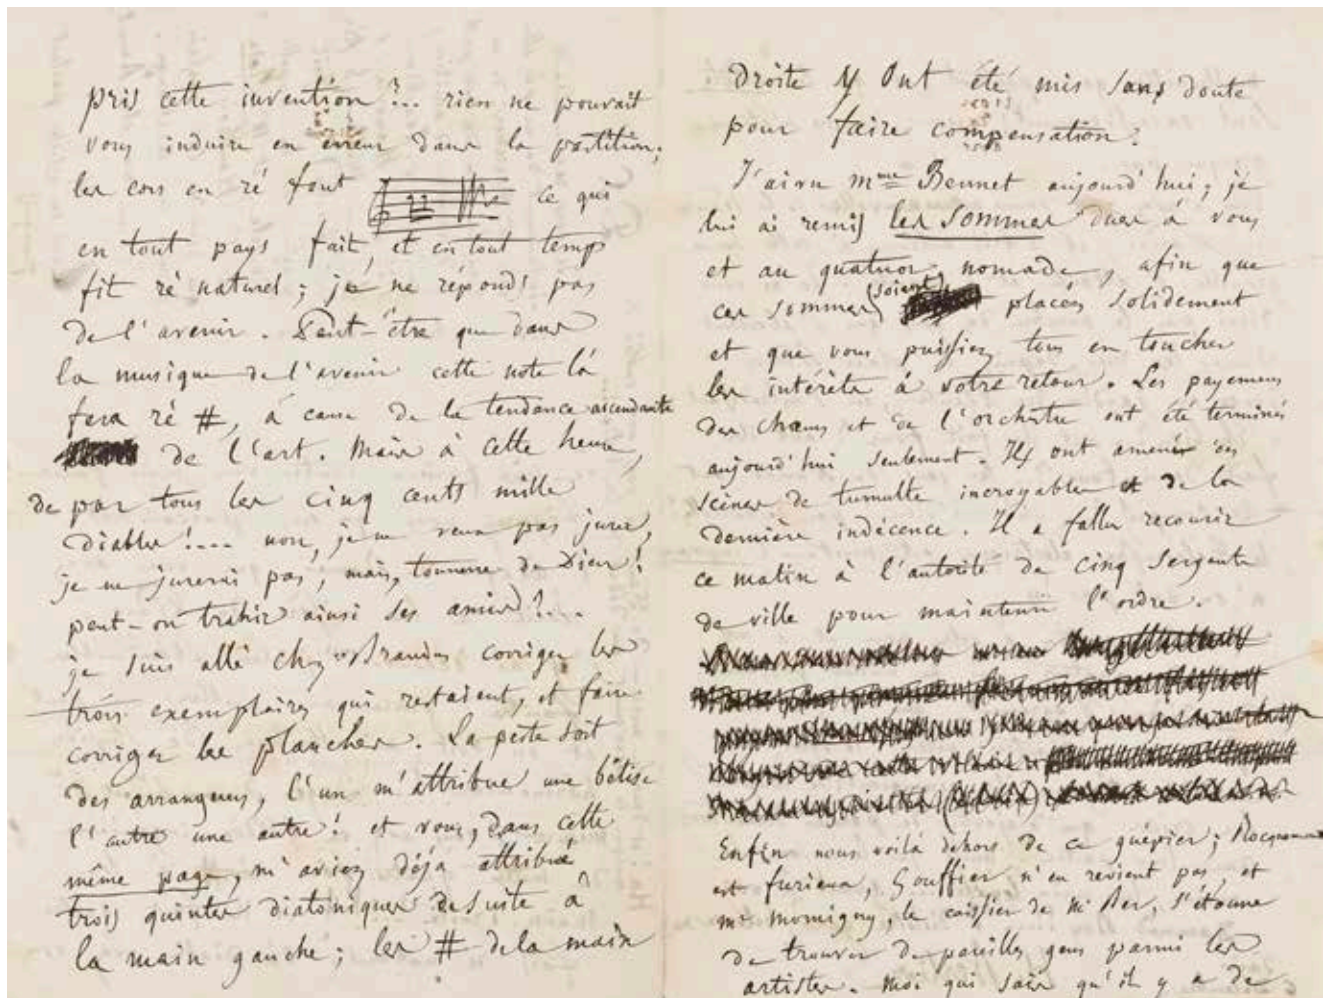 pris cette invention ?... rien ne pouvait
vous induire en erreur dans la partition;
les cors en ré font ce qui
en tout pays fait, et en tout temps
fit ré naturel; je ne réponds pas
de l'avenir. Peut-être que dans
la musique de l'avenir cette note là
fera ré #, à cause de la tendance ascendante
de l'art. Mais à cette heure,
de par tous les cinq cents mille
diables!.... non, je ne veux pas jurer,
je ne jurerai pas, mais, tonnerre de Dieu!
peut-on trahir ainsi ses amis?....
je suis allé chez Brandus corriger les
trois exemplaires qui restaient, et faire
corriger les planches. La peste soit
des arrangeurs, l'un m'attribue une bêtise
l'autre une autre! et vous, dans cette
même page, m'aviez déja attribué
trois quintes diatoniques de suite à
la main gauche; les # de la main
droite y ont été mis sans doute
pour faire compensation.
J'ai vu mme Bennet aujourd'hui; je
lui ai remis les sommes dues à vous
et au quatuor nomade, afin que
ces sommes (soient) placées solidement
et que vous puissiez tous en toucher
les intérêts à votre retour. Les payemens
des chœurs et de l'orchestre ont été terminés
aujourd'hui seulement. Ils ont amené des
scènes de tumulte incroyables et de la
dernière indécence. Il a fallu recourir
ce matin à l'autorité de cinq sergents
de ville pour maintenir l'ordre.
Enfin nous voilà dehors de ce guépier; Rocquemont
est furieux, Gouffier n'en revient pas, et
mr momigny, le caissier de Mr Ber, s'étonne
de trouver de pareilles gens parmi les
artistes. Moi qui sais qu'il y a de